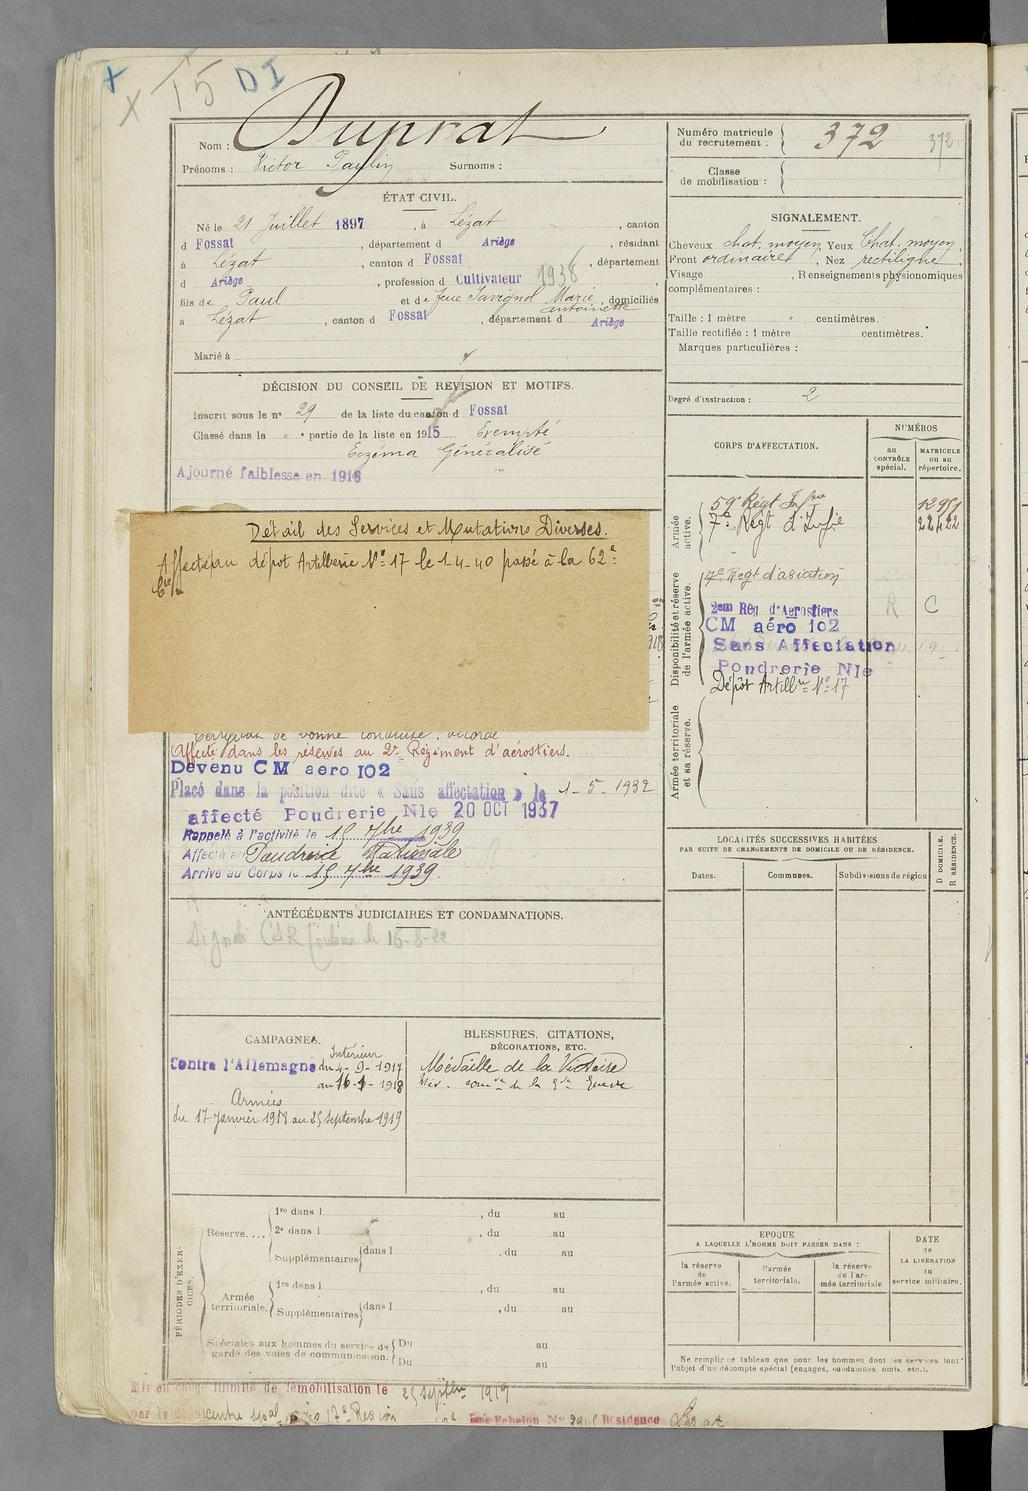 × 15 DI
Nom : Duprat
Prénoms : Victor Paulin Surnoms :
Numéro matricule du recrutement : 372 372
Classe de mobilisation :
ÉTAT CIVIL.
Né le 21 Juillet 1897, à Lézat, canton
d Fossat, département d Ariège, résidant
à Lézat, canton d Fossat, département
d Ariège, profession d Cultivateur 1938
fils de Paul et de Marie antoinette, domiciliés
à Lézat, canton d Fossat, département d Ariège
Marié à
SIGNALEMENT.
Cheveux chat. moyen Yeux Chat. moyen.
Front ordinaire, Nez rectiligne
Visage, Renseignements physionomiques
complémentaires :
Taille : 1 mètre " centimètres.
Taille rectifiée : 1 mètre centimètres.
Marques particulières :
DÉCISION DU CONSEIL DE REVISION ET MOTIFS.
Inscrit sous le n° 29 de la liste du canton d Fossat
Classé dans la " e partie de la liste en 1915 Exempté
Eczéma Généralisé
Ajourné faiblesse en 1916
Degré d'instruction : 2
CORPS D'AFFECTATION.
NUMÉROS
au CONTRÔLE spécial.
MATRICULE ou au répertoire.
Armée active.
59e Régt Infie
7e Régt d'Infie 22422
Disponibilité et réserve de l'armée active.
2em Rég d'Aerostiers R C
CM aéro 102
Sans Affectation
Poudrerie Nle
Dépôt Artillrie No 17
Armée territoriale et sa réserve.
Détail des Services et Mutations Diverses.
Affecté au dépôt Artillerie No 17 le 1-4-40 passé à la 62e
Cie
Certificat de bonne conduite accordé
Affecté dans les réserves au 2e Régiment d'aérostiers.
Devenu CM aero 102
Placé dans la position dite « Sans affectation » le 1-5-1932
affecté Poudrerie Nle 20 OCT 1937
Rappelé à l'activité le 15 7bre 1939
Affecté à Poudrerie Nationale
Arrivé au Corps le 15 7bre 1939.
LOCALITÉS SUCCESSIVES HABITÉES
PAR SUITE DE CHANGEMENTS DE DOMICILE OU DE RÉSIDENCE.
D DOMICILE.
R RÉSIDENCE.
Dates. Communes. Subdivisions de région
ANTÉCÉDENTS JUDICIAIRES ET CONDAMNATIONS.
16-8-22
CAMPAGNES.
Intérieur
Contre l'Allemagne du 4-9-1917
au 16-1-1918
Armées
du 17 Janvier 1918 au 25 septembre 1919
BLESSURES, CITATIONS,
DÉCORATIONS, ETC.
Médaille de la Victoire
Méd. comve de la Gde Guerre
PÉRIODES D'EXERCICES.
Réserve....
1re dans l , du au
2e dans l , du au
Supplémentaires dans l , du au
Armée territoriale.
1re dans l , du au
Supplémentaires dans l , du au
Spéciales aux hommes du service de garde des voies de communication.
Du au
Du au
EPOQUE
A LAQUELLE L'HOMME DOIT PASSER DANS :
la réserve de l'armée active.
l'armée territoriale.
la réserve de l'armée territoriale
DATE de LA LIBÉRATION du service militaire.
Ne remplir ce tableau que pour les hommes dont les services font
l'objet d'un décompte spécial (engagés, condamnés, omis, etc.).
Mis en congé illimité de démobilisation le 25 septbre 1919
par le dépôt 17e Région Echelon No Résidence Lézat